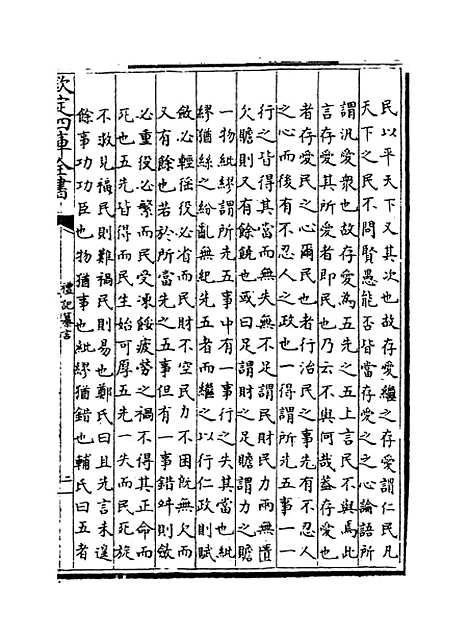 民以平天下又其次也故存愛繼之存愛謂仁民凡
天下之民不問賢愚能否皆當存愛之之心論語所
謂汎愛衆也故存愛為五先之五上言民不與焉此
言存愛其所愛者即民也乃云不與何哉葢存愛也
者存愛民之心爾民也者行治民之事先有不忍人
之心而後有不忍人之政也一得謂所先五事一一
行之皆得其當而無失無不足謂民財民力两無匱
欠贍則又有餘饒也或曰足謂財之足贍謂力之贍
一物紕繆謂所先五事中有一事行之失其當也紕
繆猶絲之紛亂無紀先五者而繼之以行仁政則賦
斂必輕徭役必省而民財不空民力不困既無欠而
又有餘也若於所當先之五事但有一事錯舛則斂
必重役必繁而民受凍餒疲勞之禍不得其正命而
死也五先皆得而民生始可厚五先一失而民死旋
不救見福民則難禍民則易也鄭氏曰且先言未遑
餘事功功臣也物猶事也紕繆猶錯也輔氏曰五者
欽定四庫全書
禮記纂言
二